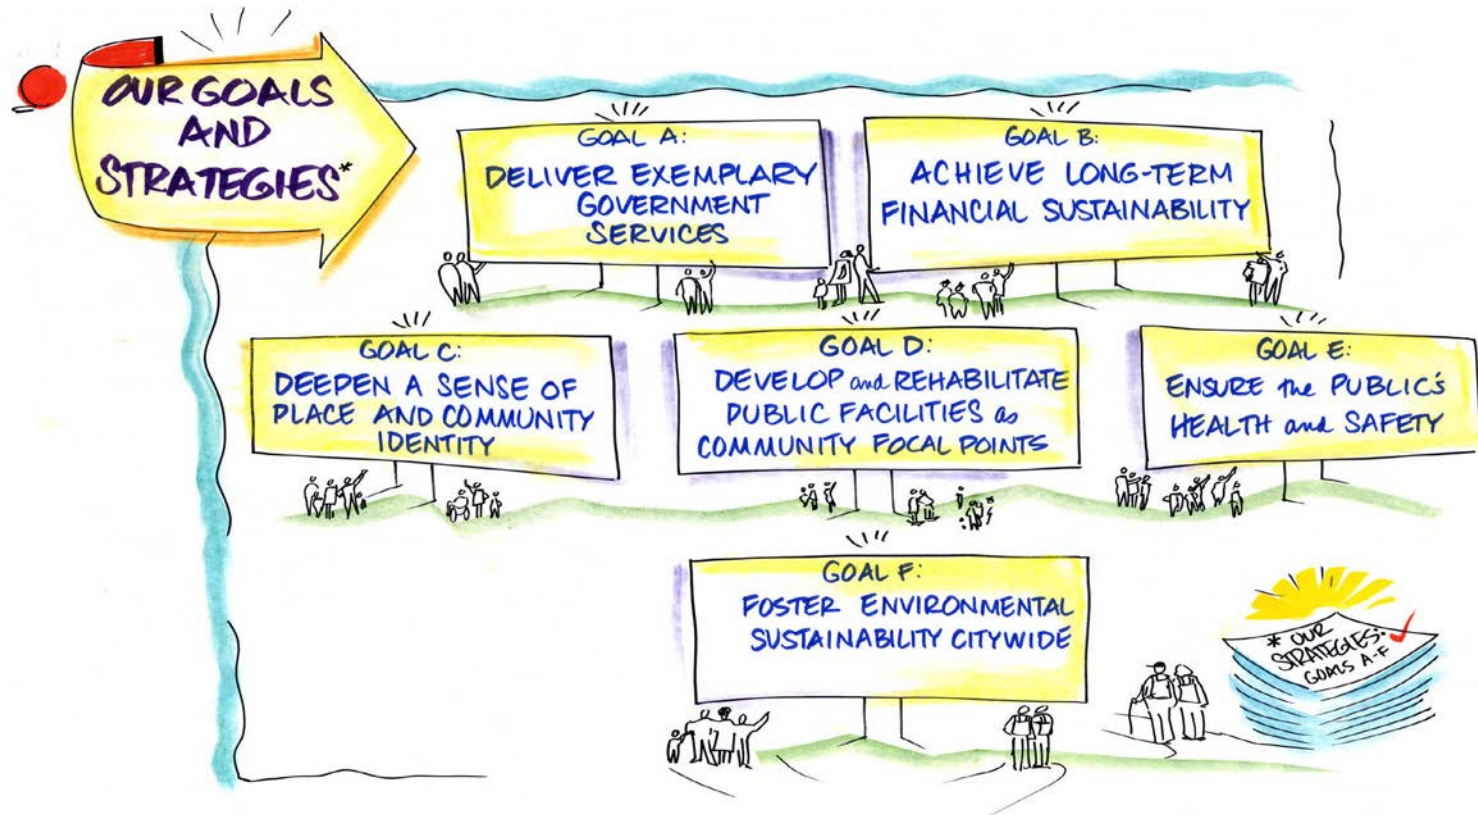 OUR GOALS
AND
STRATEGIES*
GOAL A:
DELIVER EXEMPLARY
GOVERNMENT
SERVICES
GOAL B:
ACHIEVE LONG-TERM
FINANCIAL SUSTAINABILITY
GOAL C:
DEEPEN A SENSE OF
PLACE AND COMMUNITY
IDENTITY
GOAL D:
DEVELOP and REHABILITATE
PUBLIC FACILITIES as
COMMUNITY FOCAL POINTS
GOAL E:
ENSURE the PUBLIC'S
HEALTH and SAFETY
GOAL F:
FOSTER ENVIRONMENTAL
SUSTAINABILITY CITYWIDE
* OUR
STRATEGIES:
GOALS A-F